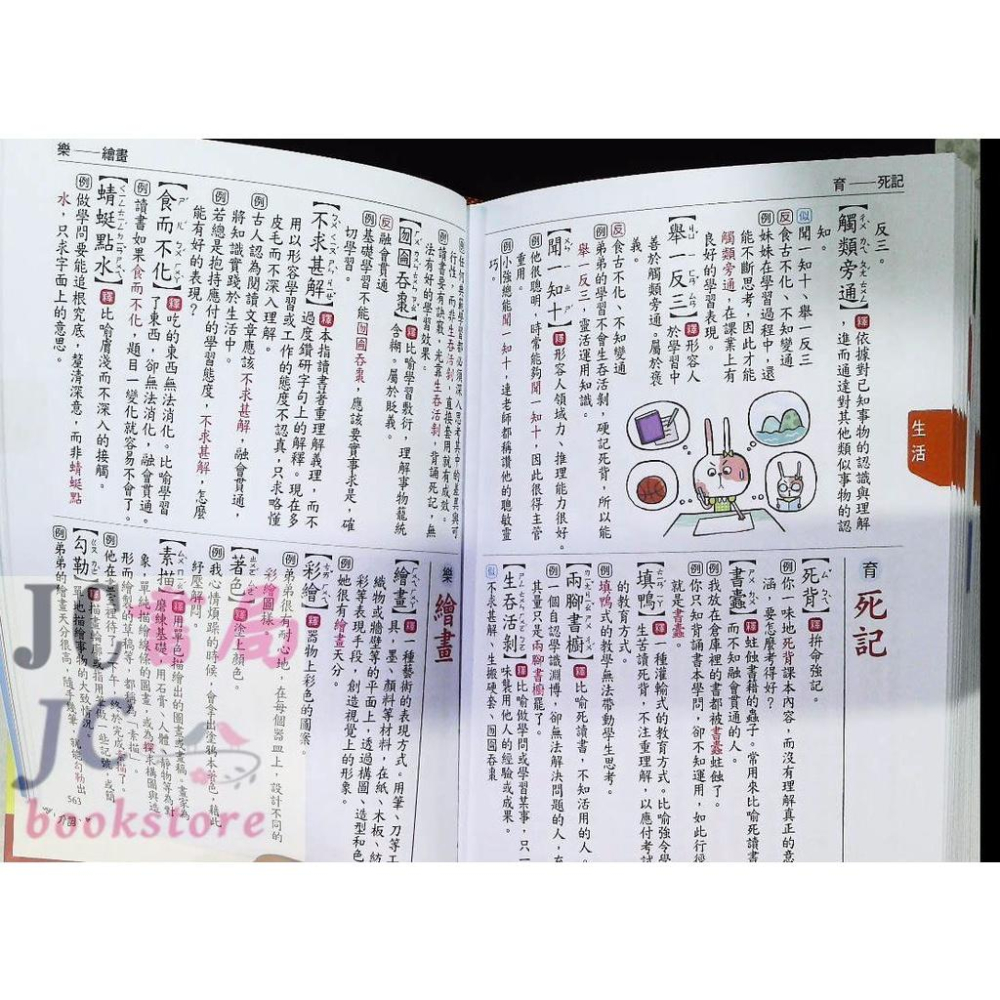 育——死記
反三。
【觸類旁通】釋依據對已知事物的認識與理解
，進而通達對其他類似事物的認
知。
似聞一知十、舉一反三
反食古不化、不知變通
例妹妹在學習過程中，還
能不斷思考，因此才能
觸類旁通，在課業上有
良好的學習表現。
【舉一反三】釋形容人
於學習中
善於觸類旁通。屬於褒
義。
反食古不化、不知變通
例弟弟的學習不會生吞活剝，硬記死背，所以能
舉一反三，靈活運用知識。
【聞一知十】釋形容人領域力、推理能力很好。
例他很聰明，時常能夠聞一知十，因此很得主管
重用。
例小強總能聞一知十，連老師都稱讚他的聰敏靈
巧。
生活
育 死記
【死背】釋拚命強記。
例你一味地死背課本內容，而沒有理解真正的意
涵，要怎麼考得好？
【書蠹】釋蛀蝕書籍的蟲子。常用來比喻死讀書
而不知融會貫通的人。
例我放在倉庫裡的書都被書蠹蛀蝕了。
例你只知背誦書本學問，卻不知運用，如此行徑
就是書蠹。
【填鴨】釋一種灌輸式的教育方式。比喻強令學
生苦讀死背，不注重理解，以應付考試
的教育方式。
例填鴨式的教學無法帶動學生思考。
【兩腳書櫥】釋比喻死讀書，不知活用的人。
例一個自認學識淵博，卻無法解決問題的人，充
其量只是兩腳書櫥罷了。
【生吞活剝】釋比喻做學問或學習某事，只一
味襲用他人的經驗或成果。
似不求甚解、生搬硬套、囫圇吞棗
樂——繪畫
行性，而非生吞活剝，直接套用就有成效。
例讀書要有訣竅，光靠生吞活剝，背誦死記，無
法有好的學習效果。
【囫圇吞棗】釋比喻學習敷衍，理解事物籠統
含糊。屬於貶義。
反融會貫通
例基礎學習不能囫圇吞棗，應該要實事求是，確
切學習。
【不求甚解】釋本指讀書著重理解義理，而不
過度鑽研字句上的解釋。現在多
用以形容學習或工作的態度不認真，只求略懂
皮毛而不深入理解。
例古人認為閱讀文章應該不求甚解，融會貫通，
將知識實踐於生活中。
例若總是抱持應付的學習態度，不求甚解，怎麼
能有好的表現？
【食而不化】釋吃的東西無法消化。比喻學習
了東西，卻無法消化，融會貫通。
例讀書如果食而不化，題目一變化就容易不會了。
【蜻蜓點水】釋比喻膚淺而不深入的接觸。
例做學問要能追根究底，釐清深意，而非蜻蜓點
水，只求字面上的意思。
樂 繪畫
【繪畫】釋一種藝術的表現方式。用筆、刀等工
具，墨、顏料等材料，在紙、木板、紡
織物或牆壁等的平面上，透過構圖、造型和色
彩等表現手段，創造視覺上的形象。
例她很有繪畫天分。
【彩繪】釋器物上彩色的圖案。
例弟弟很有耐心地，在每個器皿上，設計不同的
彩繪圖樣。
【著色】釋塗上顏色。
例我心情煩躁的時候，會拿出塗鴉本著色，藉此
紓壓解悶。
【素描】
【勾勒】
563
JC書局
JC
bookstore